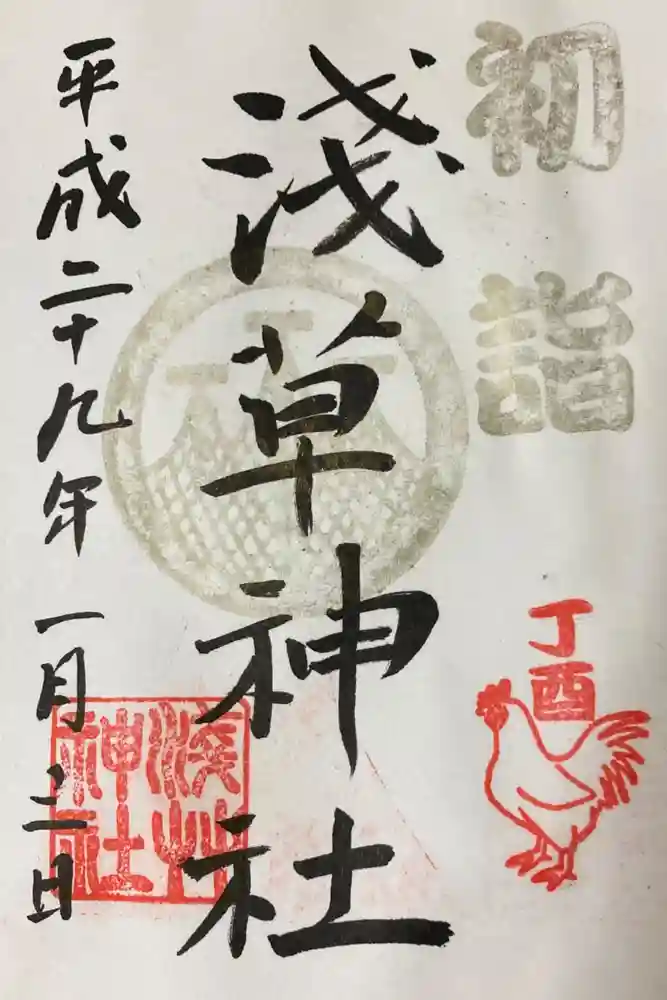 初詣
丁酉
淺草神社
平成二十九年一月三日
淺艸
神社